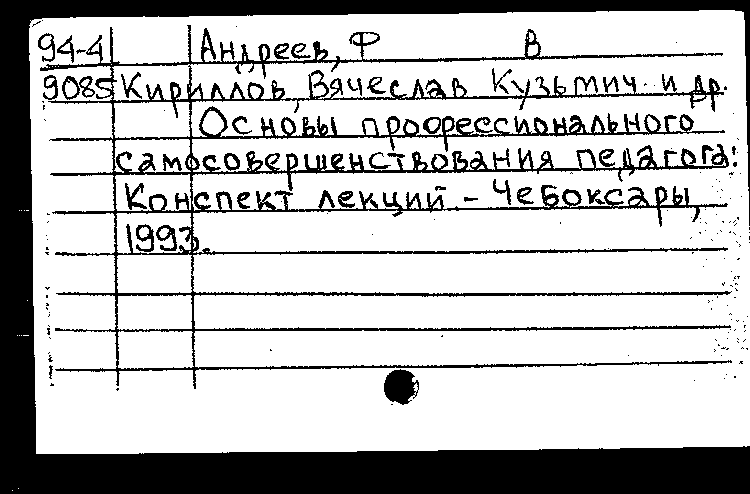 94-4 Андреев, Ф В
9085 Кириллов, Вячеслав Кузьмич и др.
Основы профессионального
самосовершенствования педагога:
Конспект лекций - Чебоксары,
1993.